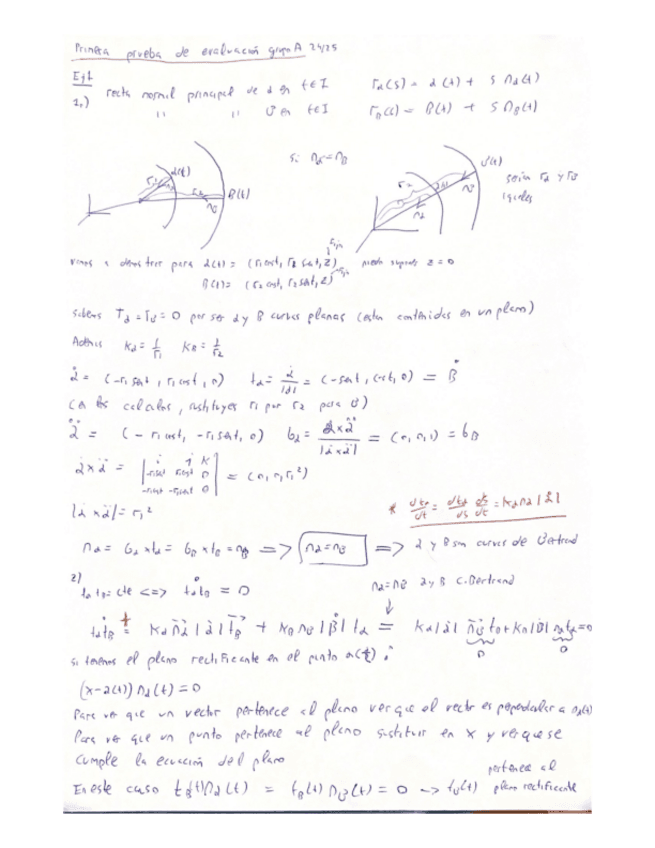 Primera prueba de evaluación grupo A 24/25
Ej1
1.) recta normal principal de α en t∈I   r_α(s) = α(t) + s n_α(t)
" " β en t∈I   r_β(s) = β(t) + s n_β(t)
si n_α = n_β
α(t)
β(t)
β(t)
serían r_α y r_β
iguales
vamos a demostrar para α(t) = (r₁cost, r₂ sent, z)   puedo suponer z = 0
β(t) = (r₂ cost, r₂ sent, z)
sabemos T_α = T_β = 0 por ser α y β curvas planas (están contenidas en un plano)
Además   K_α = 1/r₁   K_β = 1/r₂
α̇ = (-r₁ sent, r₁cost, 0)   t_α = α̇/|α̇| = (-sent, cost, 0) = β̇
(en los cálculos, sustituyes r₁ por r₂ para β)
α̈ = (-r₁cost, -r₁sent, 0)   b_α = α̇×α̈/|α̇×α̈| = (0,0,1) = b_β
α̇×α̈ = | i j k ; -r₁sent r₁cost 0 ; -r₁cost -r₁sent 0 | = (0,0,r₁²)
|α̇×α̈| = r₁²
* dt_α/dt = dt_α/ds ds/dt = K_α n_α |α̇|
n_α = b_α×t_α = b_β×t_β = n_β => n_α = n_β => α y β son curvas de Bertrand
2)
t_α t_β = cte <=> t_α t_β = 0   n_α = n_β α y β C. Bertrand
t_α t_β = K_α n_α |α̇| t_β + K_β n_β |β̇| t_α = K_α |α̇| n_β t_β + K_β |β̇| n_α t_α = 0
0   0
si tenemos el plano rectificante en el punto α(t):
(x-α(t)) n_α(t) = 0
Para ver que un vector pertenece al plano ver que el vector es perpendicular a n_α(t)
Para ver que un punto pertenece al plano sustituir en x y ver que se
cumple la ecuación del plano
En este caso t_β(t) n_α(t) = t_β(t) n_β(t) = 0 -> t_β(t) pertenece al
plano rectificante